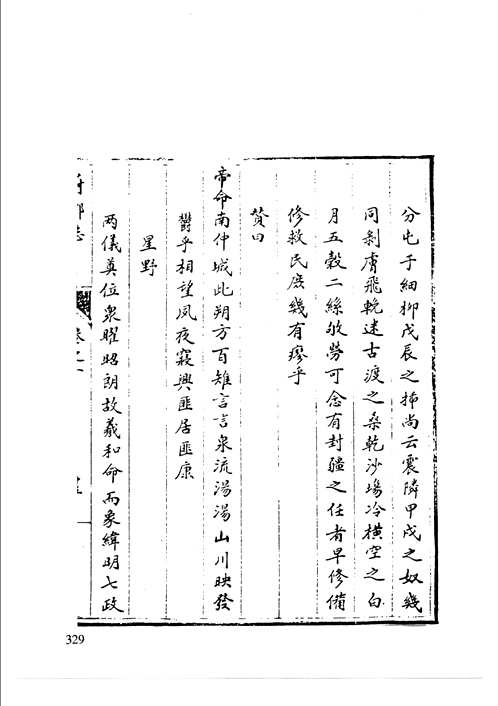 分屯于細柳戊辰之揷尚云震隣甲戌之奴幾
同剝膚飛輓迷古渡之桑乾沙塲冷橫空之白
月五穀二絲敂勞可念有封疆之任者早修備
修救民庶幾有瘳乎
贊曰
帝命南仲城此朔方百雉言言泉流湯湯山川映發
鬱乎相望夙夜寢興匪居匪康
星野
两儀奠位衆曜昭朗故羲和命而象緯明七政
志
卷之
329